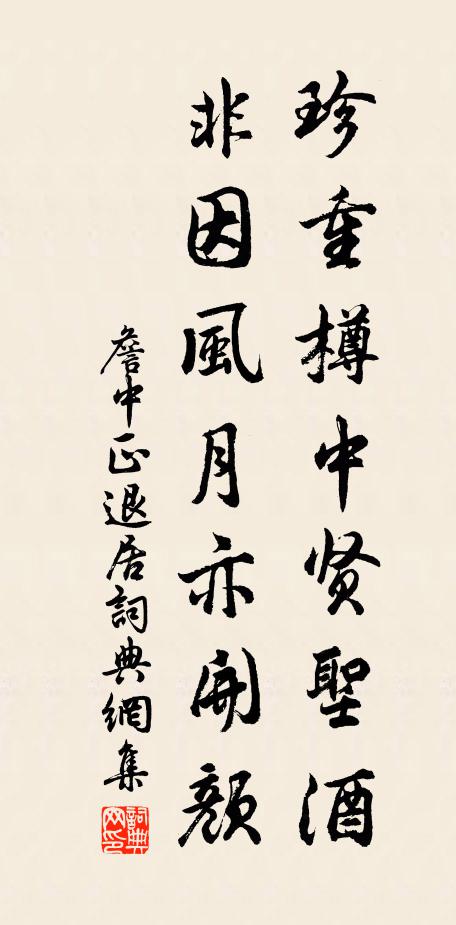 珍重樽中贤聖酒
非因風月亦開顏
詹中正退居詞典網集
詞典網印